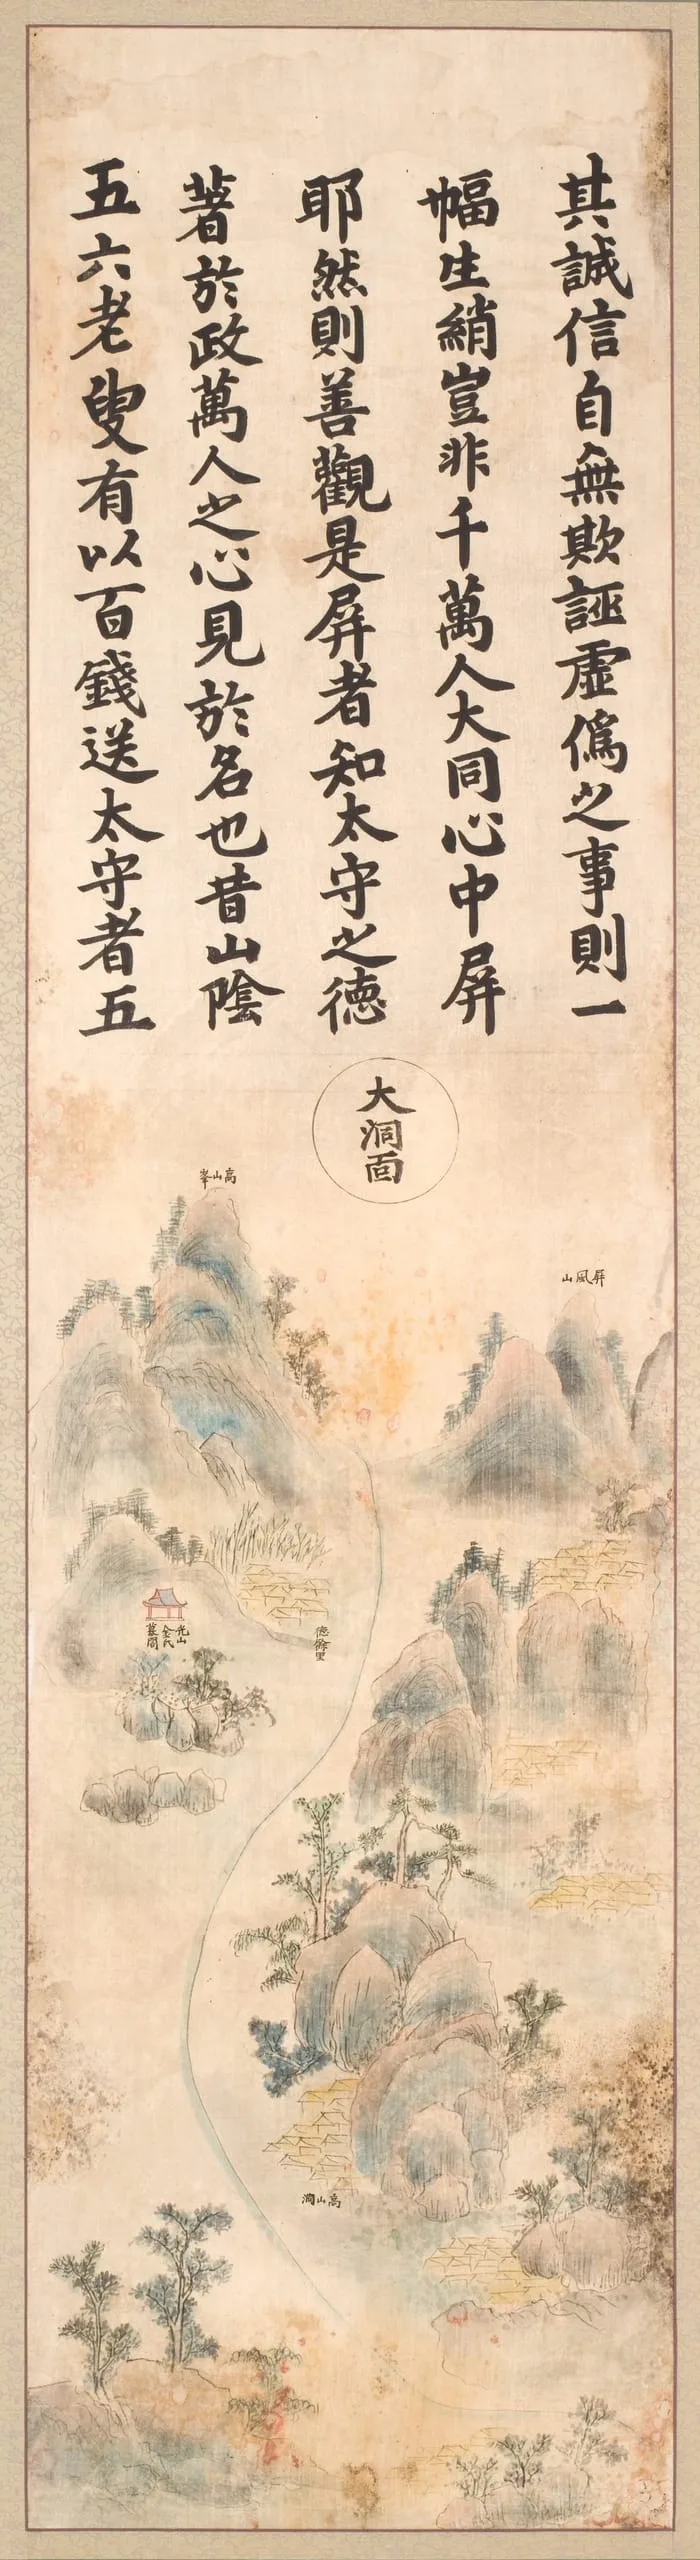 其誠信自無欺誣虛僞之事則一
幅生綃豈非千萬人大同心中屏
耶然則善觀是屏者知太守之德
著於政萬人之心見於名也昔山陰
五六老叟有以百錢送太守者五
大洞面
高山峯
屏風山
光山
金氏
墓閣
德餘里
高山澗